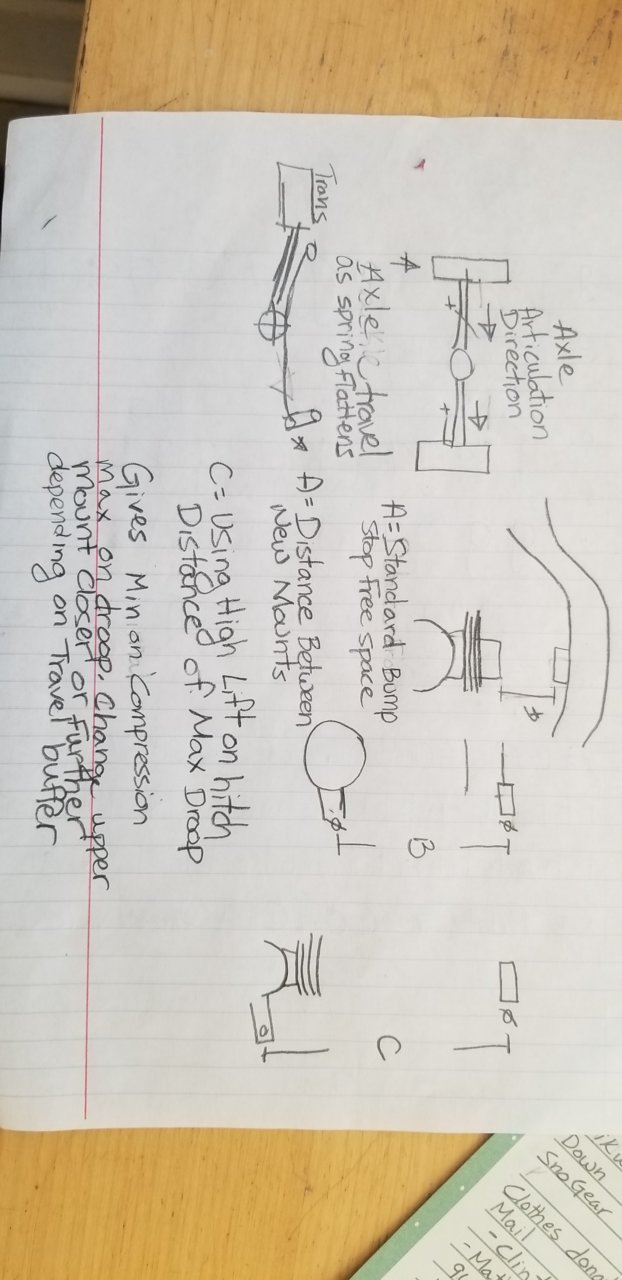 Axle
Articulation
Direction
A
Axle travel
as spring flattens
Trans
A = Standard Bump
Stop free space
A = Distance Between
New Mounts
B
C
C = Using High Lift on hitch
Distance of Max Droop
Gives Min on Compression
Max on droop. Change upper
mount closer or further
depending on Travel buffer
Down
SnoGear
Clothes
Mail